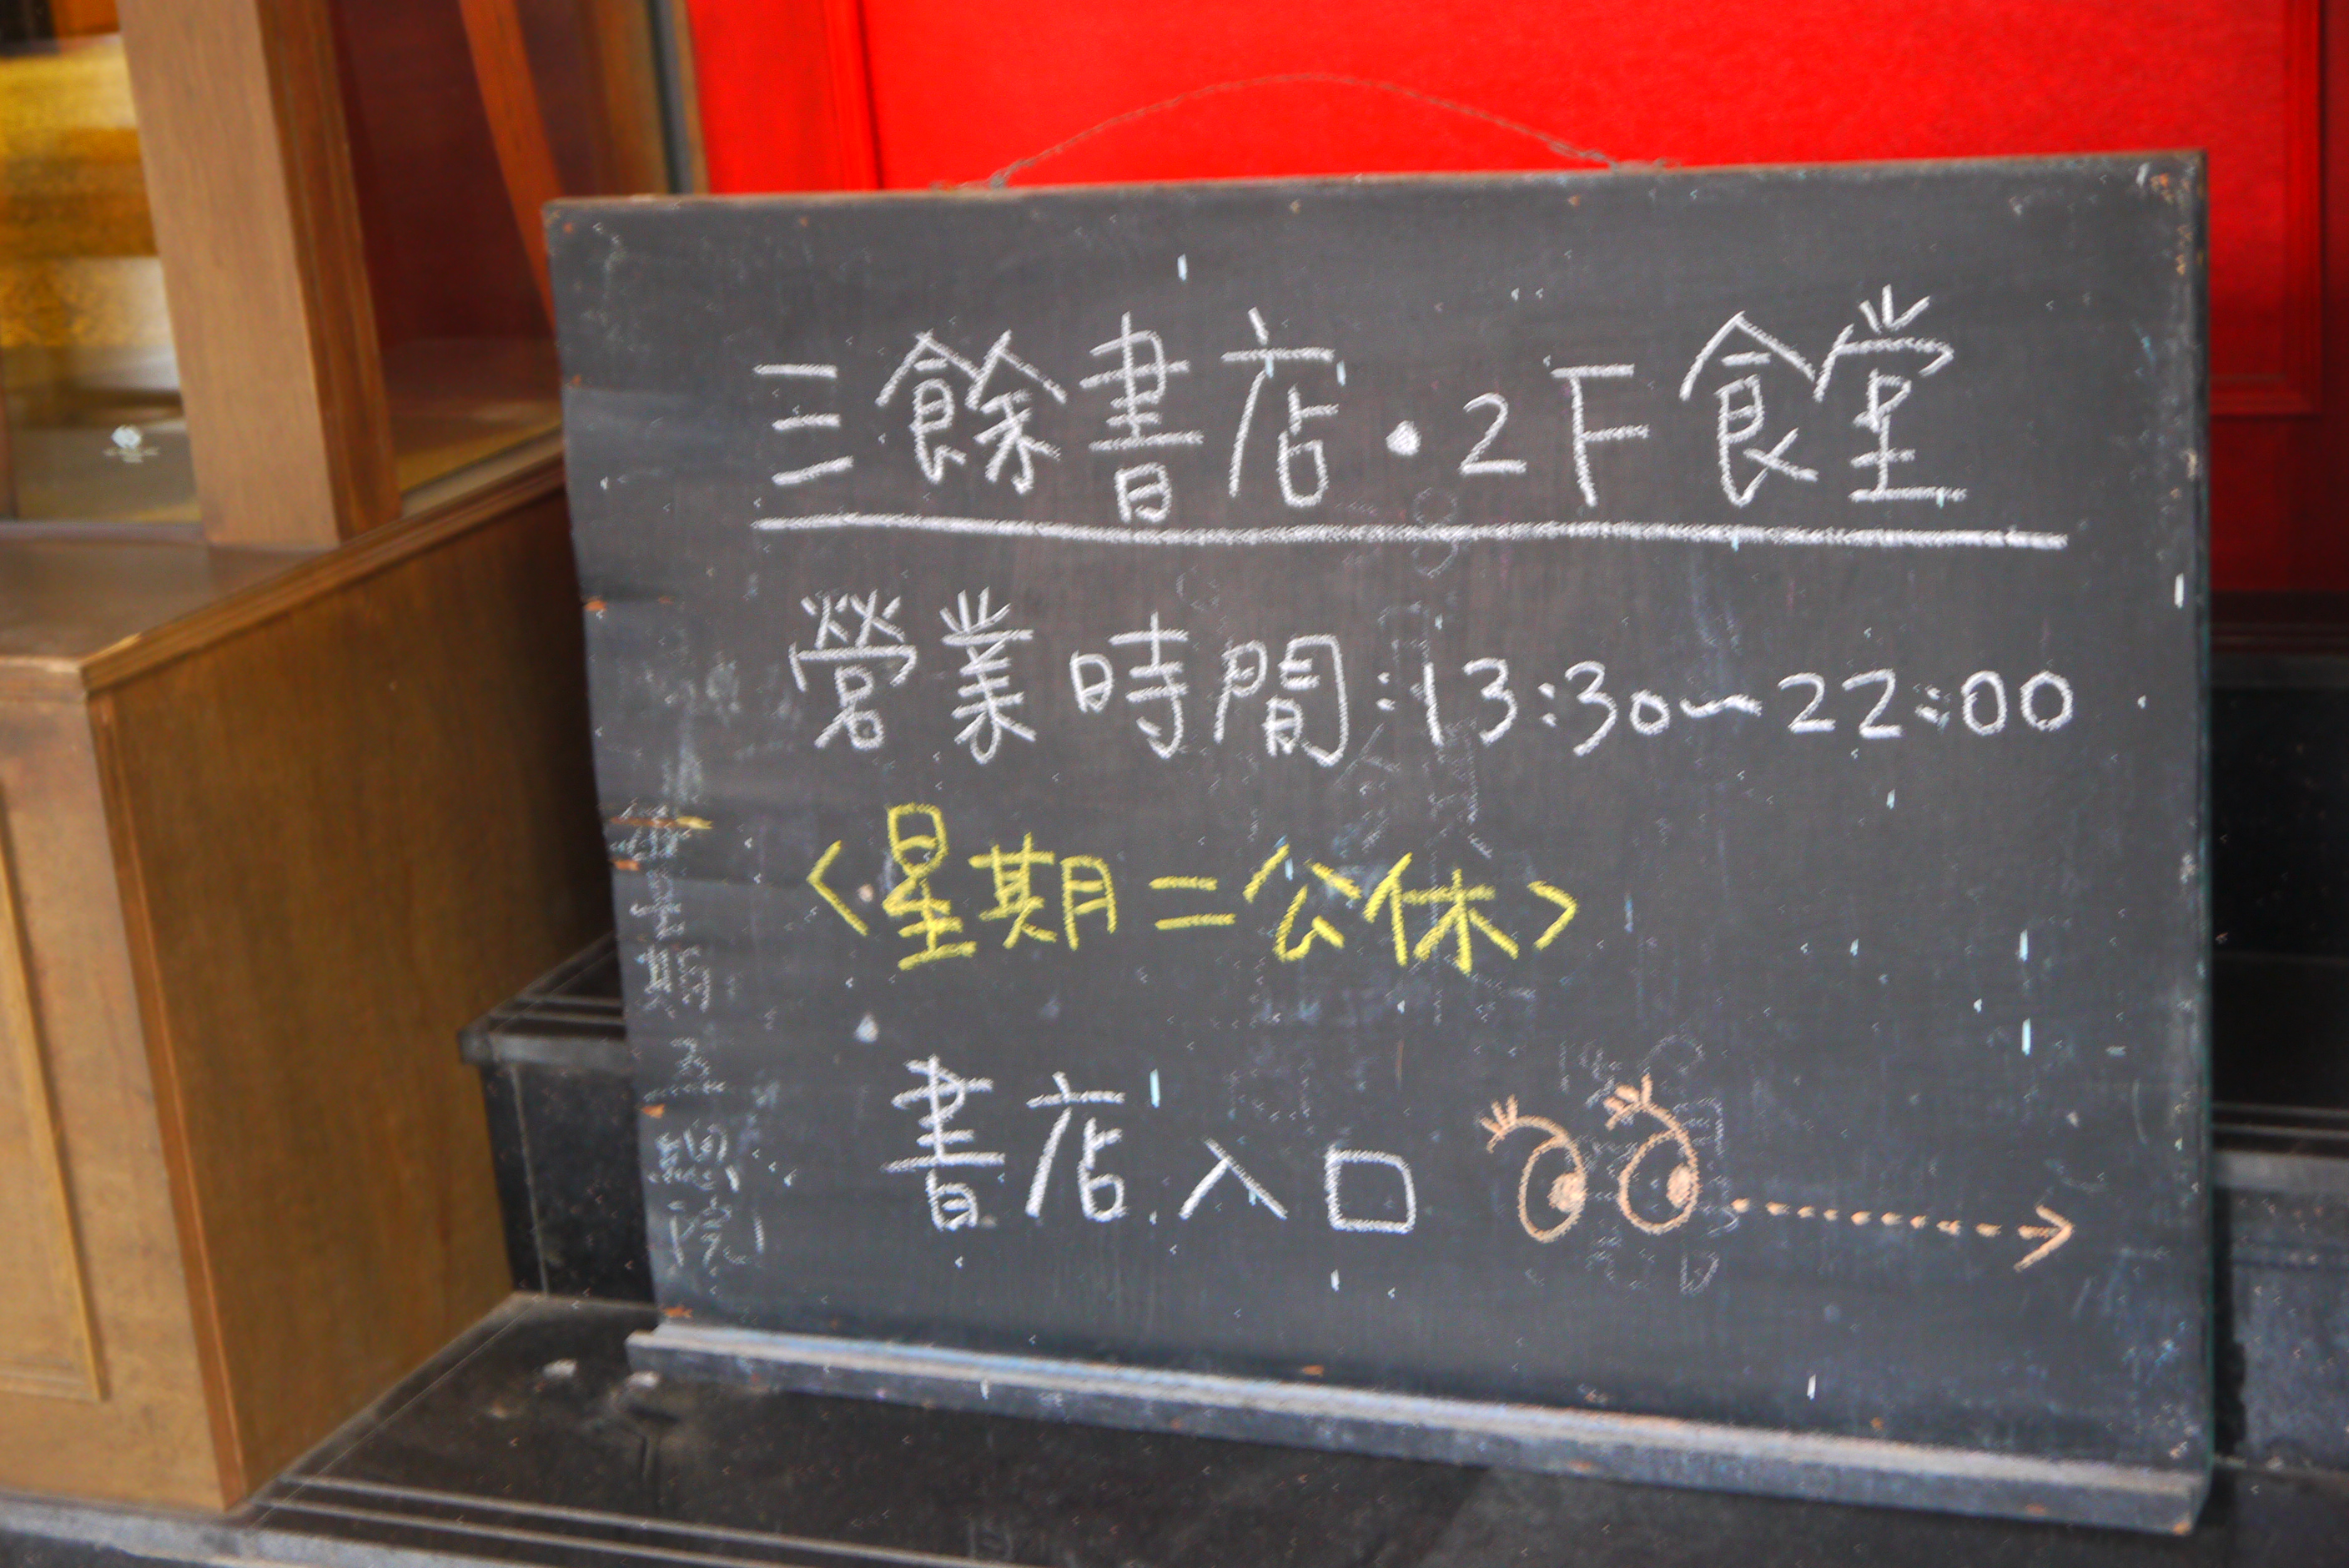 三餘書店・2F食堂
營業時間:13:30~22:00
<星期二公休>
書店入口